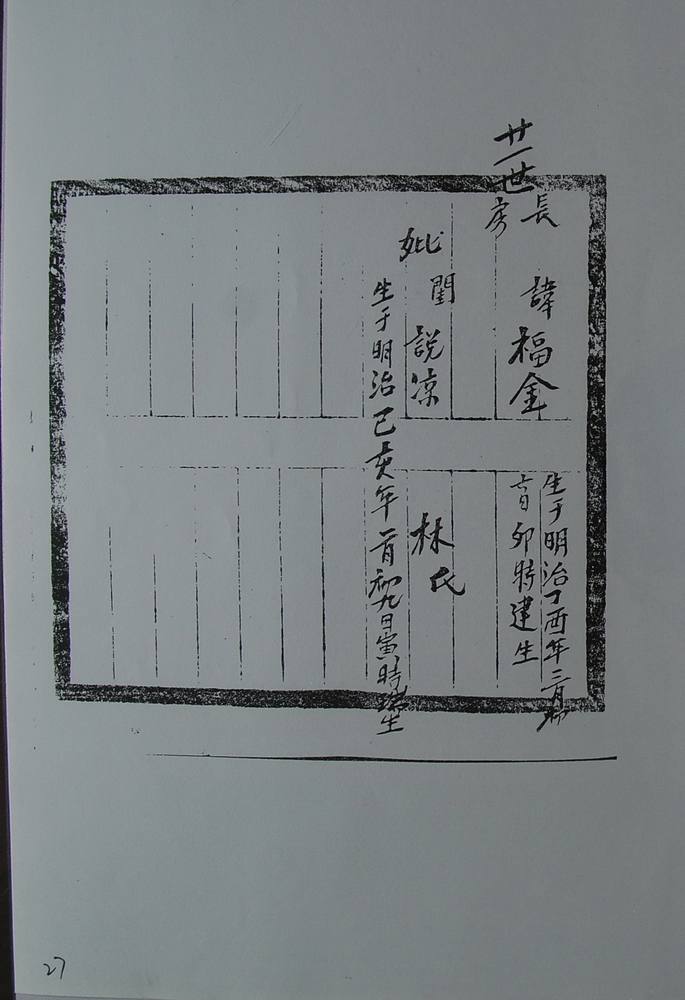 廿一世
長
房
諱福金
生于明治丁酉年二月初
六日卯時建生
妣
閨說涼
林氏
生于明治己亥年 月初九日寅時瑞生
27